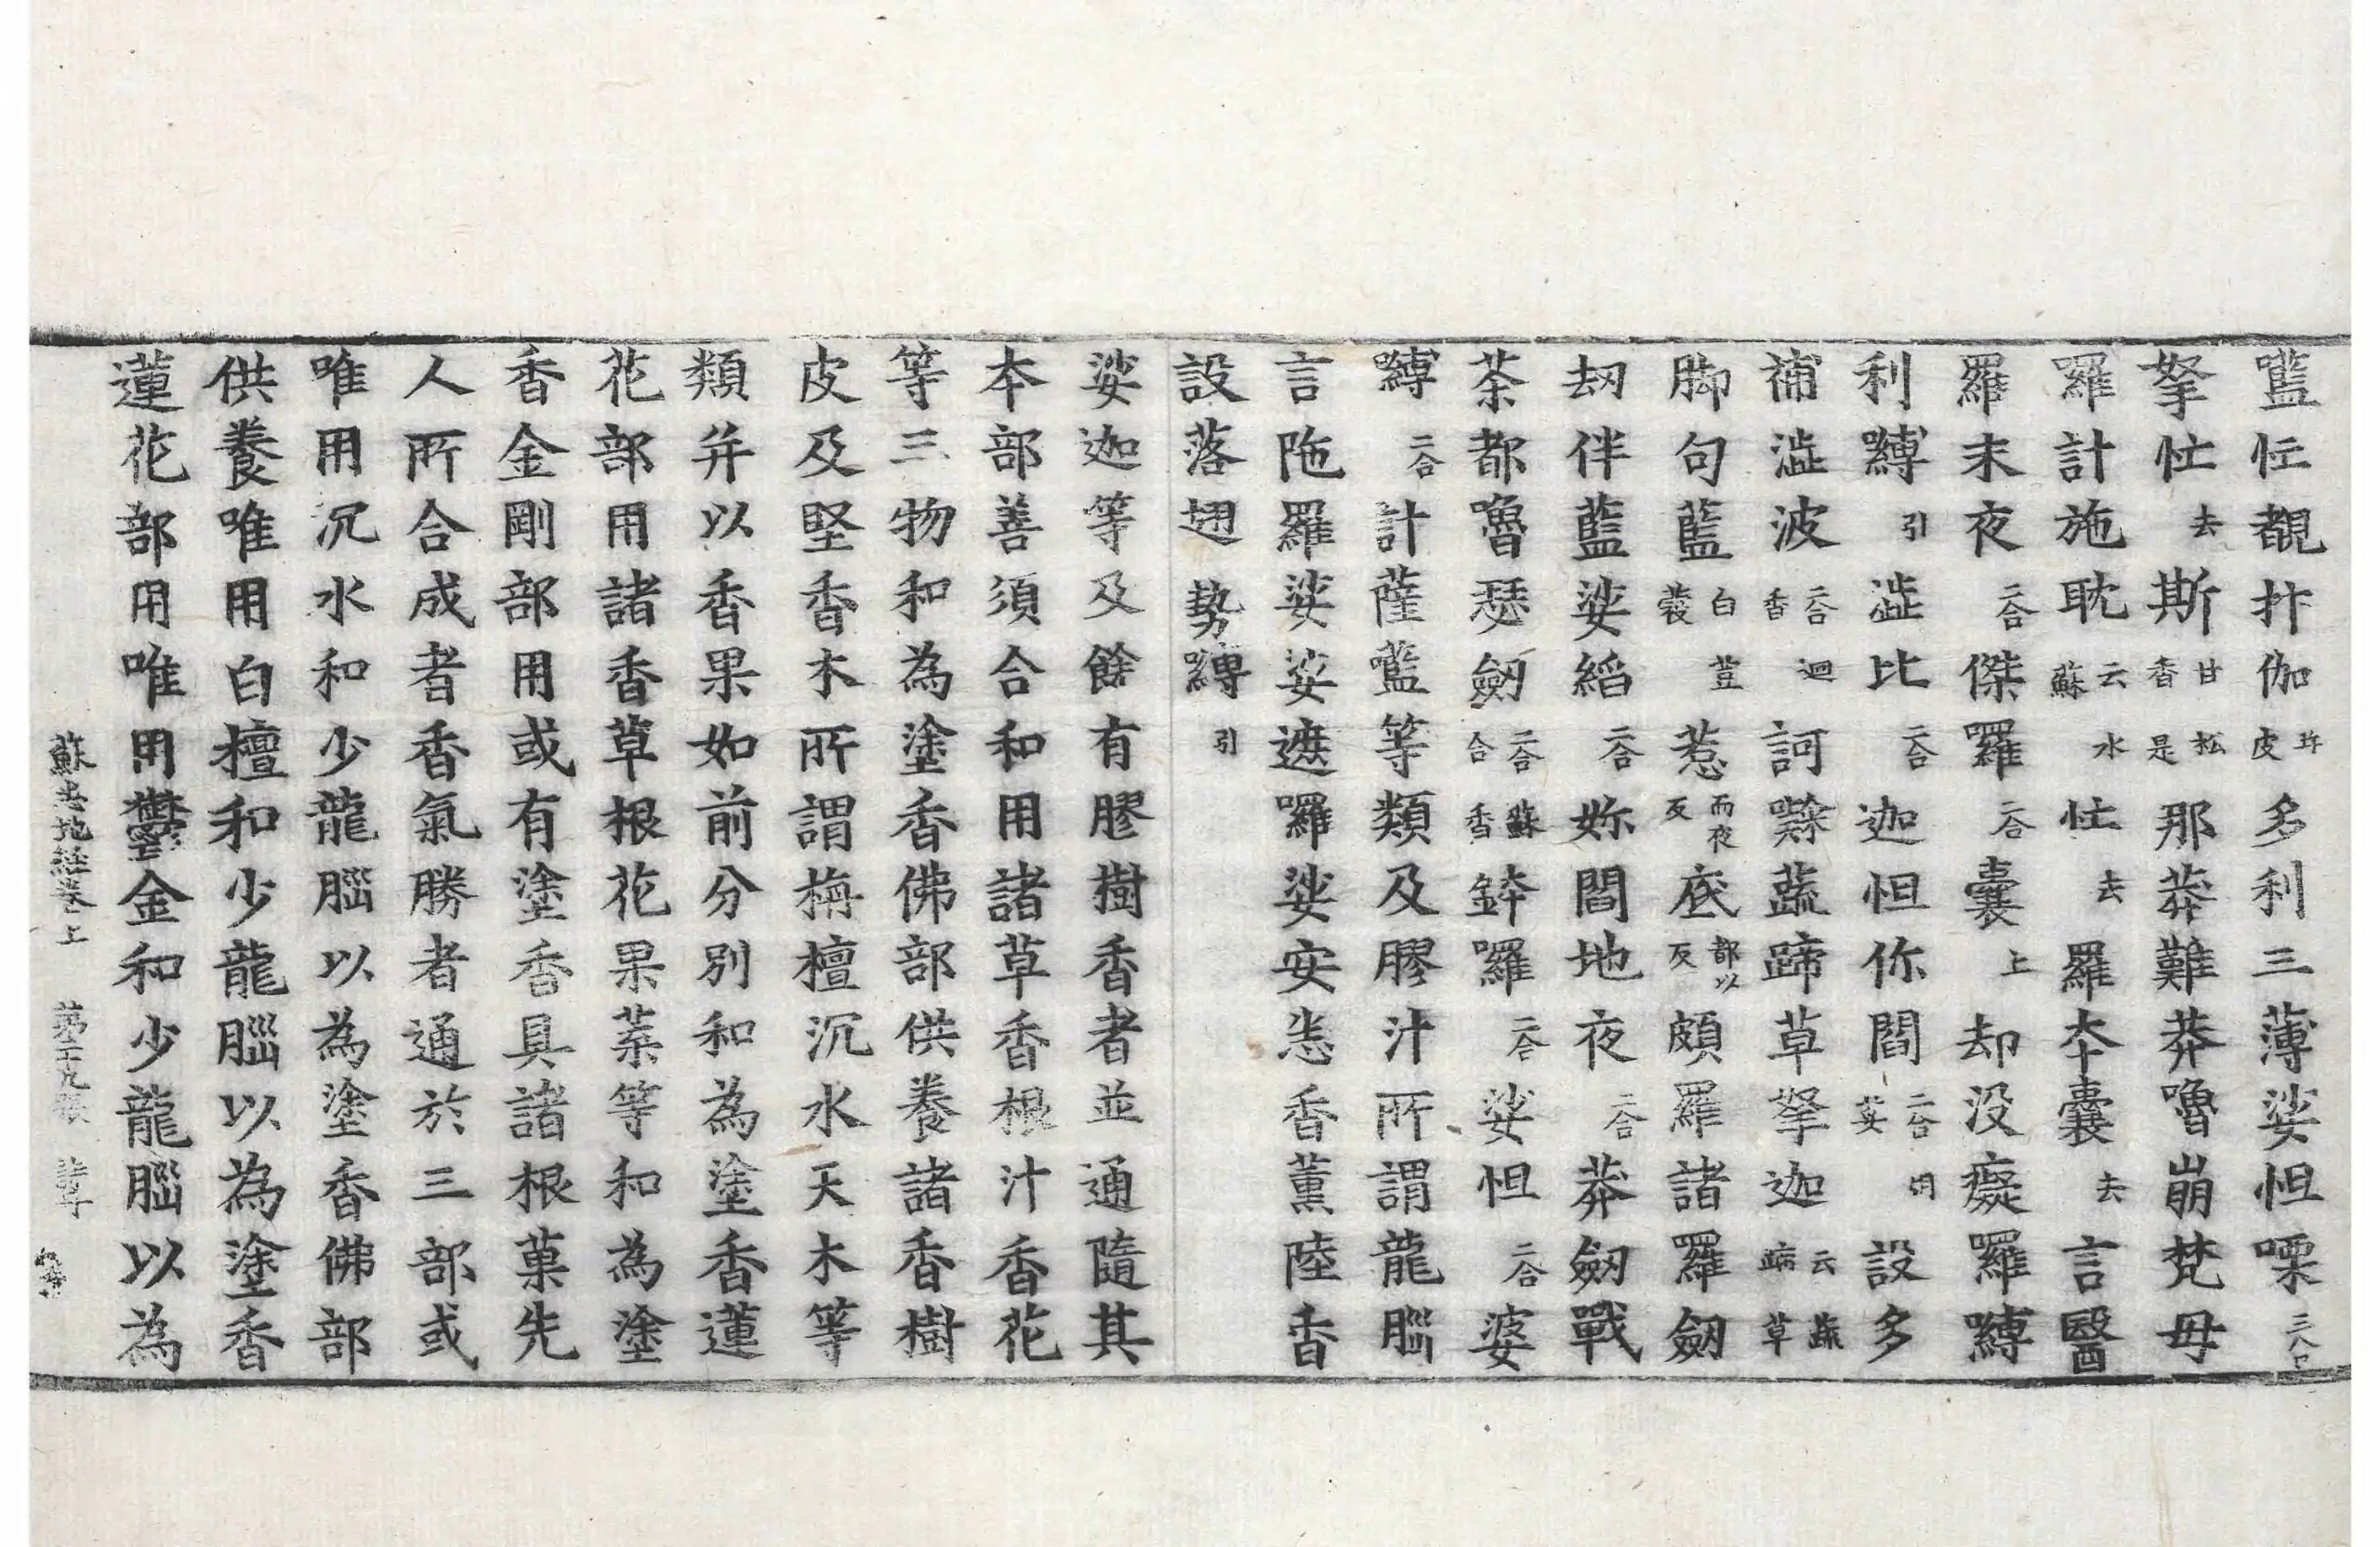 㘕㤮覩抃伽皮多利三薄娑怛㗚
拏忙去斯甘松香是那莽難莽嚕崩梵毋
囉計施耽云蘇水忙去羅夲囊去言醫
羅末夜二合傑羅二合囊上却沒癡羅嚩
利嚩引澁比二合迦怛你閻二合設多
補澁波二合香迴訶㗚蔬蹄草拏迦
脚句藍白荳蔲惹而夜反底都以反頗羅諸羅劒
刼伴藍娑縚二合妳閻地夜二合莽劒戰
荼都嚕瑟劒二合合蘇香鉢囉二合娑怛二合婆
嚩二合計薩㘕等類及膠汁所謂龍腦
言陁羅娑娑遮囉娑安悉香薰陸香
設落翅勢嚩引
娑迦等及餘有膠樹香者並通隨其
夲部善須合和用諸草香根汁香花
等三物和為塗香佛部供養諸香樹
皮及堅香木所謂栴檀沉水天木等
類并以香果如前分別和為塗香蓮
花部用諸香草根花果菓等和為塗
香金剛部用或有塗香具諸根菓先
人所合成者香氣勝者通於三部或
唯用沉水和少龍腦以為塗香佛部
供養唯用白檀和少龍腦以為塗香
蓮花部用唯用鬱金和少龍腦以為
蘇悉地經卷上 第二十九張 詩字